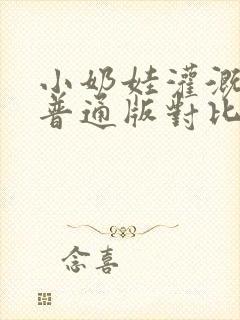 小奶娃灌溉
普通版對比
念喜